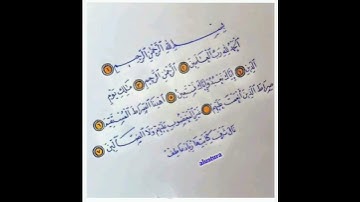 بسم الله الرحمن الرحيم
الحمد لله رب العالمين الرحمن الرحيم ملك يوم
الدين إياك نعبد وإياك نستعين اهدنا الصراط المستقيم
صراط الذين أنعمت عليهم غير المغضوب عليهم ولا الضالين